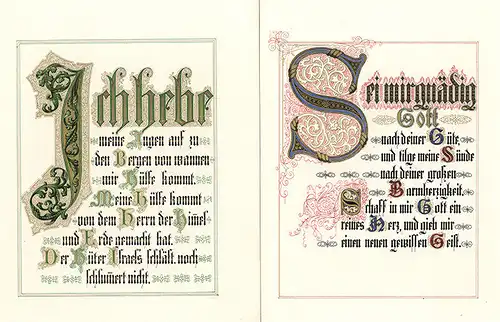 Ich hebe
meine Augen auf zu
den Bergen von wannen
mir Hülfe kommt.
Meine Hülfe kommt
von dem Herrn der Himel
und Erde gemacht hat.
Der Hüter Israels schläft noch
schlumert nicht.
Sei mir gnädig
Gott
nach deiner Güte,
und tilge meine Sünde
nach deiner großen
Barmherzigkeit.
Schaff in mir Gott ein
reines Herz, und gieb mir
einen neuen gewissen Geist.